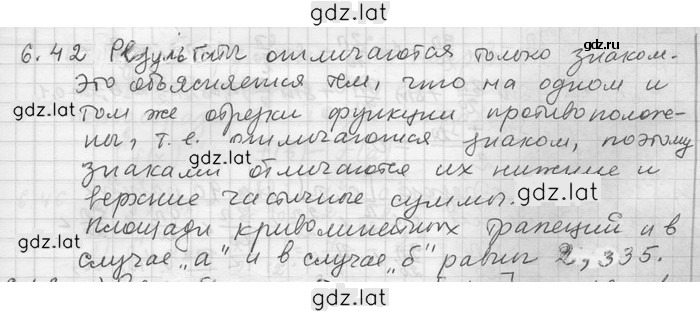 gdz.lat
6.42 Результаты отличаются только знаком.
Это объясняется тем, что на одном и
gdz.lat
том же отрезки функции противополож-
ны, т.е. отличаются знаком, поэтому
знаками отличаются их нижние и
gdz.lat
верхние частичные суммы.
Площади криволинейных трапеций и в
gdz.lat
случае „а" и в случае „б" равны 2,335.
gdz.lat